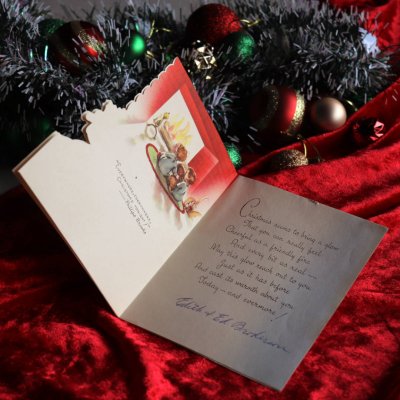 Christmas seems to bring a glow
That you can really feel
Cheerful as a friendly fire
And every bit as real —
May this glow reach out to you
Just as it has before
And cast its warmth about you
Today — and evermore!
Edith & Ed